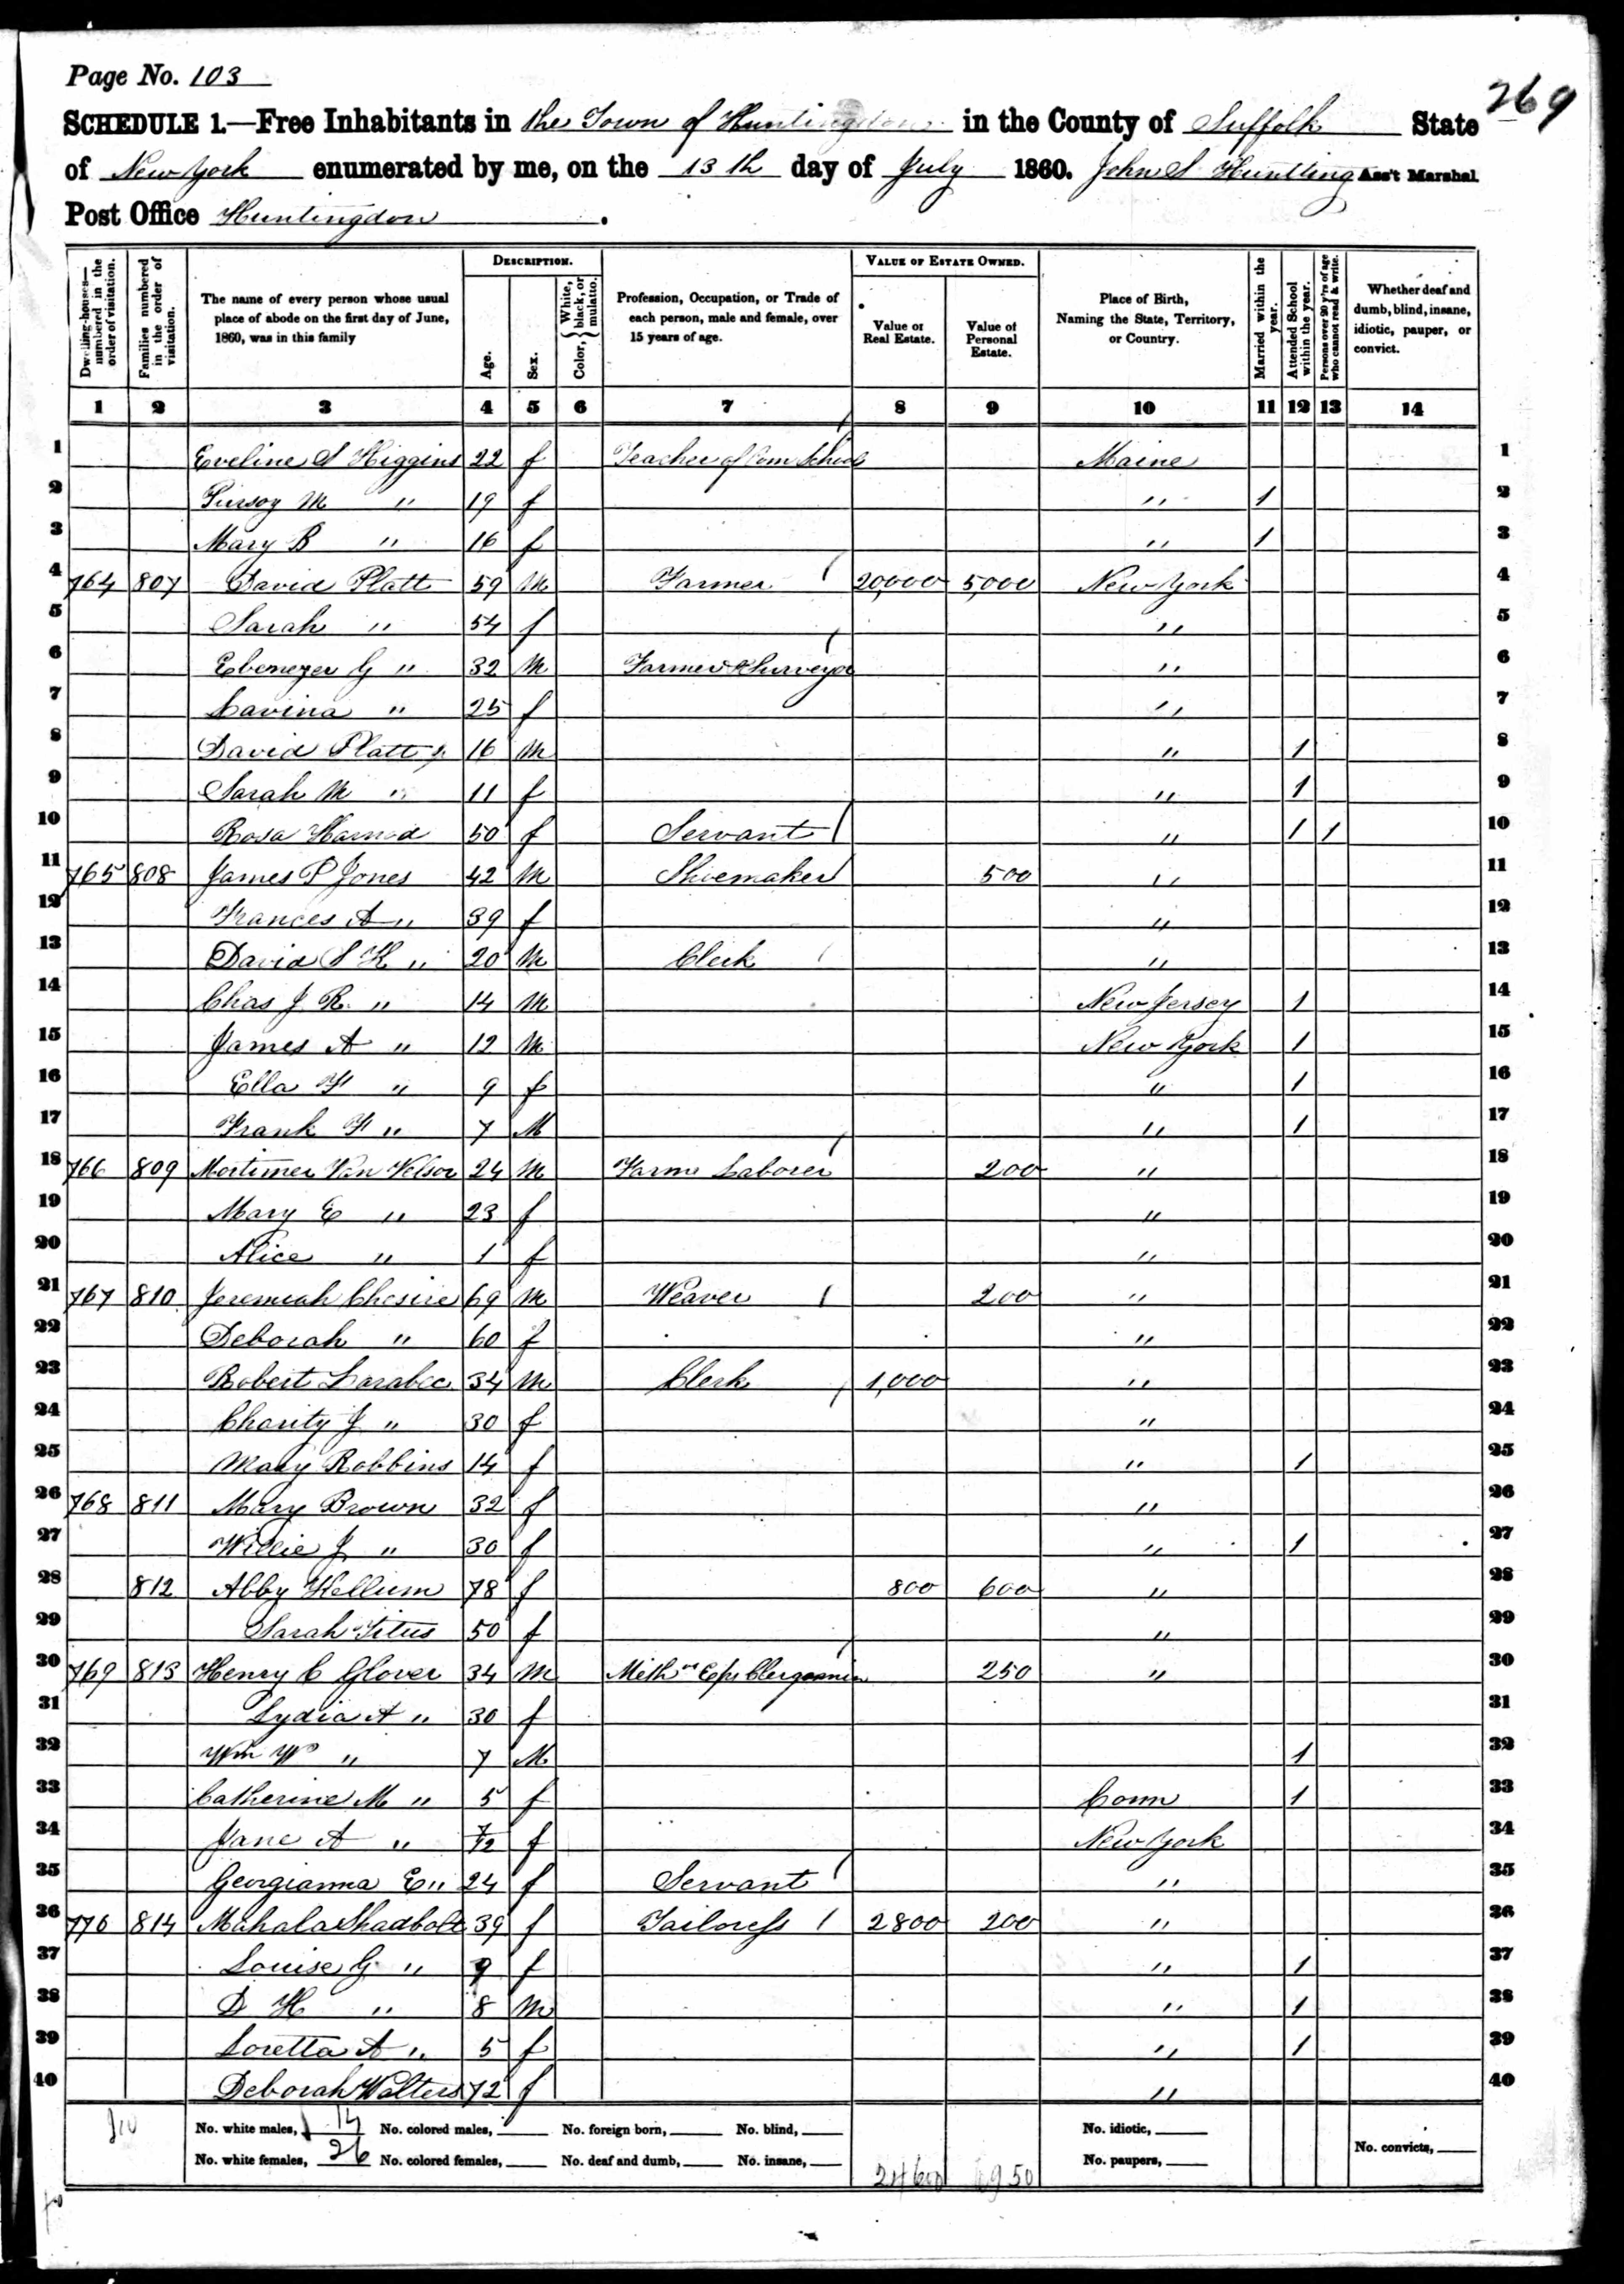 Page No. 103
269
SCHEDULE 1.—Free Inhabitants in the Town of Huntingdon in the County of Suffolk State
of New York enumerated by me, on the 13th day of July 1860. John S Huntting Ass't Marshal
Post Office Huntingdon.
Dwelling-houses—numbered in the order of visitation. Families numbered in the order of visitation. The name of every person whose usual place of abode on the first day of June, 1860, was in this family DESCRIPTION. Age. Sex. Color, {White, black, or mulatto. Profession, Occupation, or Trade of each person, male and female, over 15 years of age. VALUE OF ESTATE OWNED. Value of Real Estate. Value of Personal Estate. Place of Birth, Naming the State, Territory, or Country. Married within the year. Attended School within the year. Persons over 20 y'rs of age who cannot read & write. Whether deaf and dumb, blind, insane, idiotic, pauper, or convict.
1 2 3 4 5 6 7 8 9 10 11 12 13 14
1 Eveline S Higgins 22 f Teacher of Com School Maine 1
2 M " 19 f " 1 2
3 Mary B " 16 f " 1 3
4 764 807 David Platt 59 M Farmer 20,000 5,000 New York 4
5 Sarah " 54 f " 5
6 Ebenezer G " 32 M Farmer & Surveyor " 6
7 Lavina " 25 f " 7
8 David Platt Jr 16 M " 1 8
9 Sarah M " 11 f " 1 9
10 Rosa 50 f Servant " 1 1 10
11 765 808 James P Jones 42 M Shoemaker 500 " 11
12 Frances A " 39 f " 12
13 David S H " 20 M Clerk " 13
14 Chas J R " 14 M New Jersey 1 14
15 James A " 12 M New York 1 15
16 Ella F " 9 f " 1 16
17 Frank F " 7 M " 1 17
18 766 809 Mortimer Van Velsor 24 M Farm Laborer 200 " 18
19 Mary E " 23 f " 19
20 Alice " 1 f " 20
21 767 810 Jeremiah Chesire 69 M Weaver 200 " 21
22 Deborah " 60 f " 22
23 Robert Larabee 34 M Clerk 1,000 " 23
24 Charity J " 30 f " 24
25 Mary Robbins 14 f " 1 25
26 768 811 Mary Brown 32 f " 26
27 Willie J " 30 f " 1 27
28 812 Abby Kellum 78 f 800 600 " 28
29 Sarah Titus 50 f " 29
30 769 813 Henry C Glover 34 M Meth Epis Clergyman 250 " 30
31 Lydia A " 30 f 31
32 Wm W " 7 M 1 32
33 Catherine M " 5 f Conn 1 33
34 Jane A " 7/12 f New York 34
35 Georgianna E " 24 f Servant " 35
36 770 814 Mahala Shadbolt 39 f Tailoress 2800 200 " 36
37 Louise G " 9 f " 1 37
38 D H " 8 M " 1 38
39 Loretta A " 5 f " 1 39
40 Deborah Walters 72 f " 40
No. white males, 14 No. colored males, No. foreign born, No. blind, No. idiotic,
No. white females, 26 No. colored females, No. deaf and dumb, No. insane, 24600 6950 No. paupers, No. convicts,